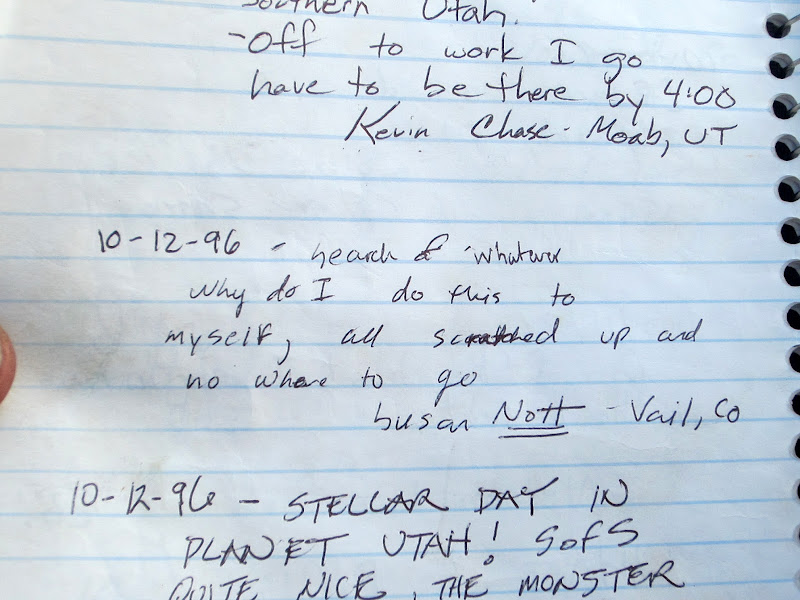 Southern Utah.
-Off to work I go
have to be there by 4:00
Kevin Chase - Moab, UT
10-12-96 - search of whatever
why do I do this to
myself, all scratched up and
no where to go
Susan Nott - Vail, Co
10-12-96 - STELLAR DAY IN
PLANET UTAH! SOFS
QUITE NICE, THE MONSTER